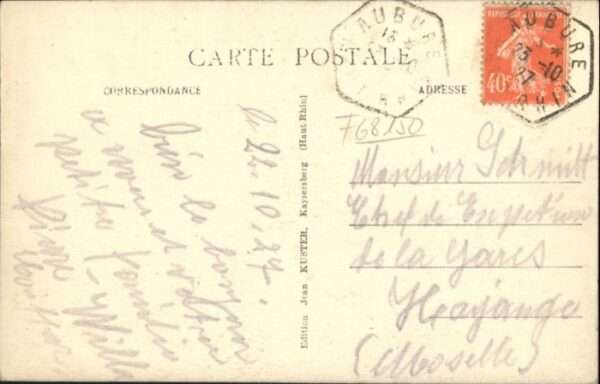 CARTE POSTALE
CORRESPONDANCE
ADRESSE
le 22.10.27.
bien le bonjour
à vous et votre
petite famille
Edition Jean KUSTER, Kaysersberg (Haut Rhin)
F68150
REPUBLIQUE FRANÇAISE
40c
AUBURE
23 -10
27
RHIN
AUBURE
Monsieur Schmitt
Chef de
de la Gare
Hayange
(Moselle)